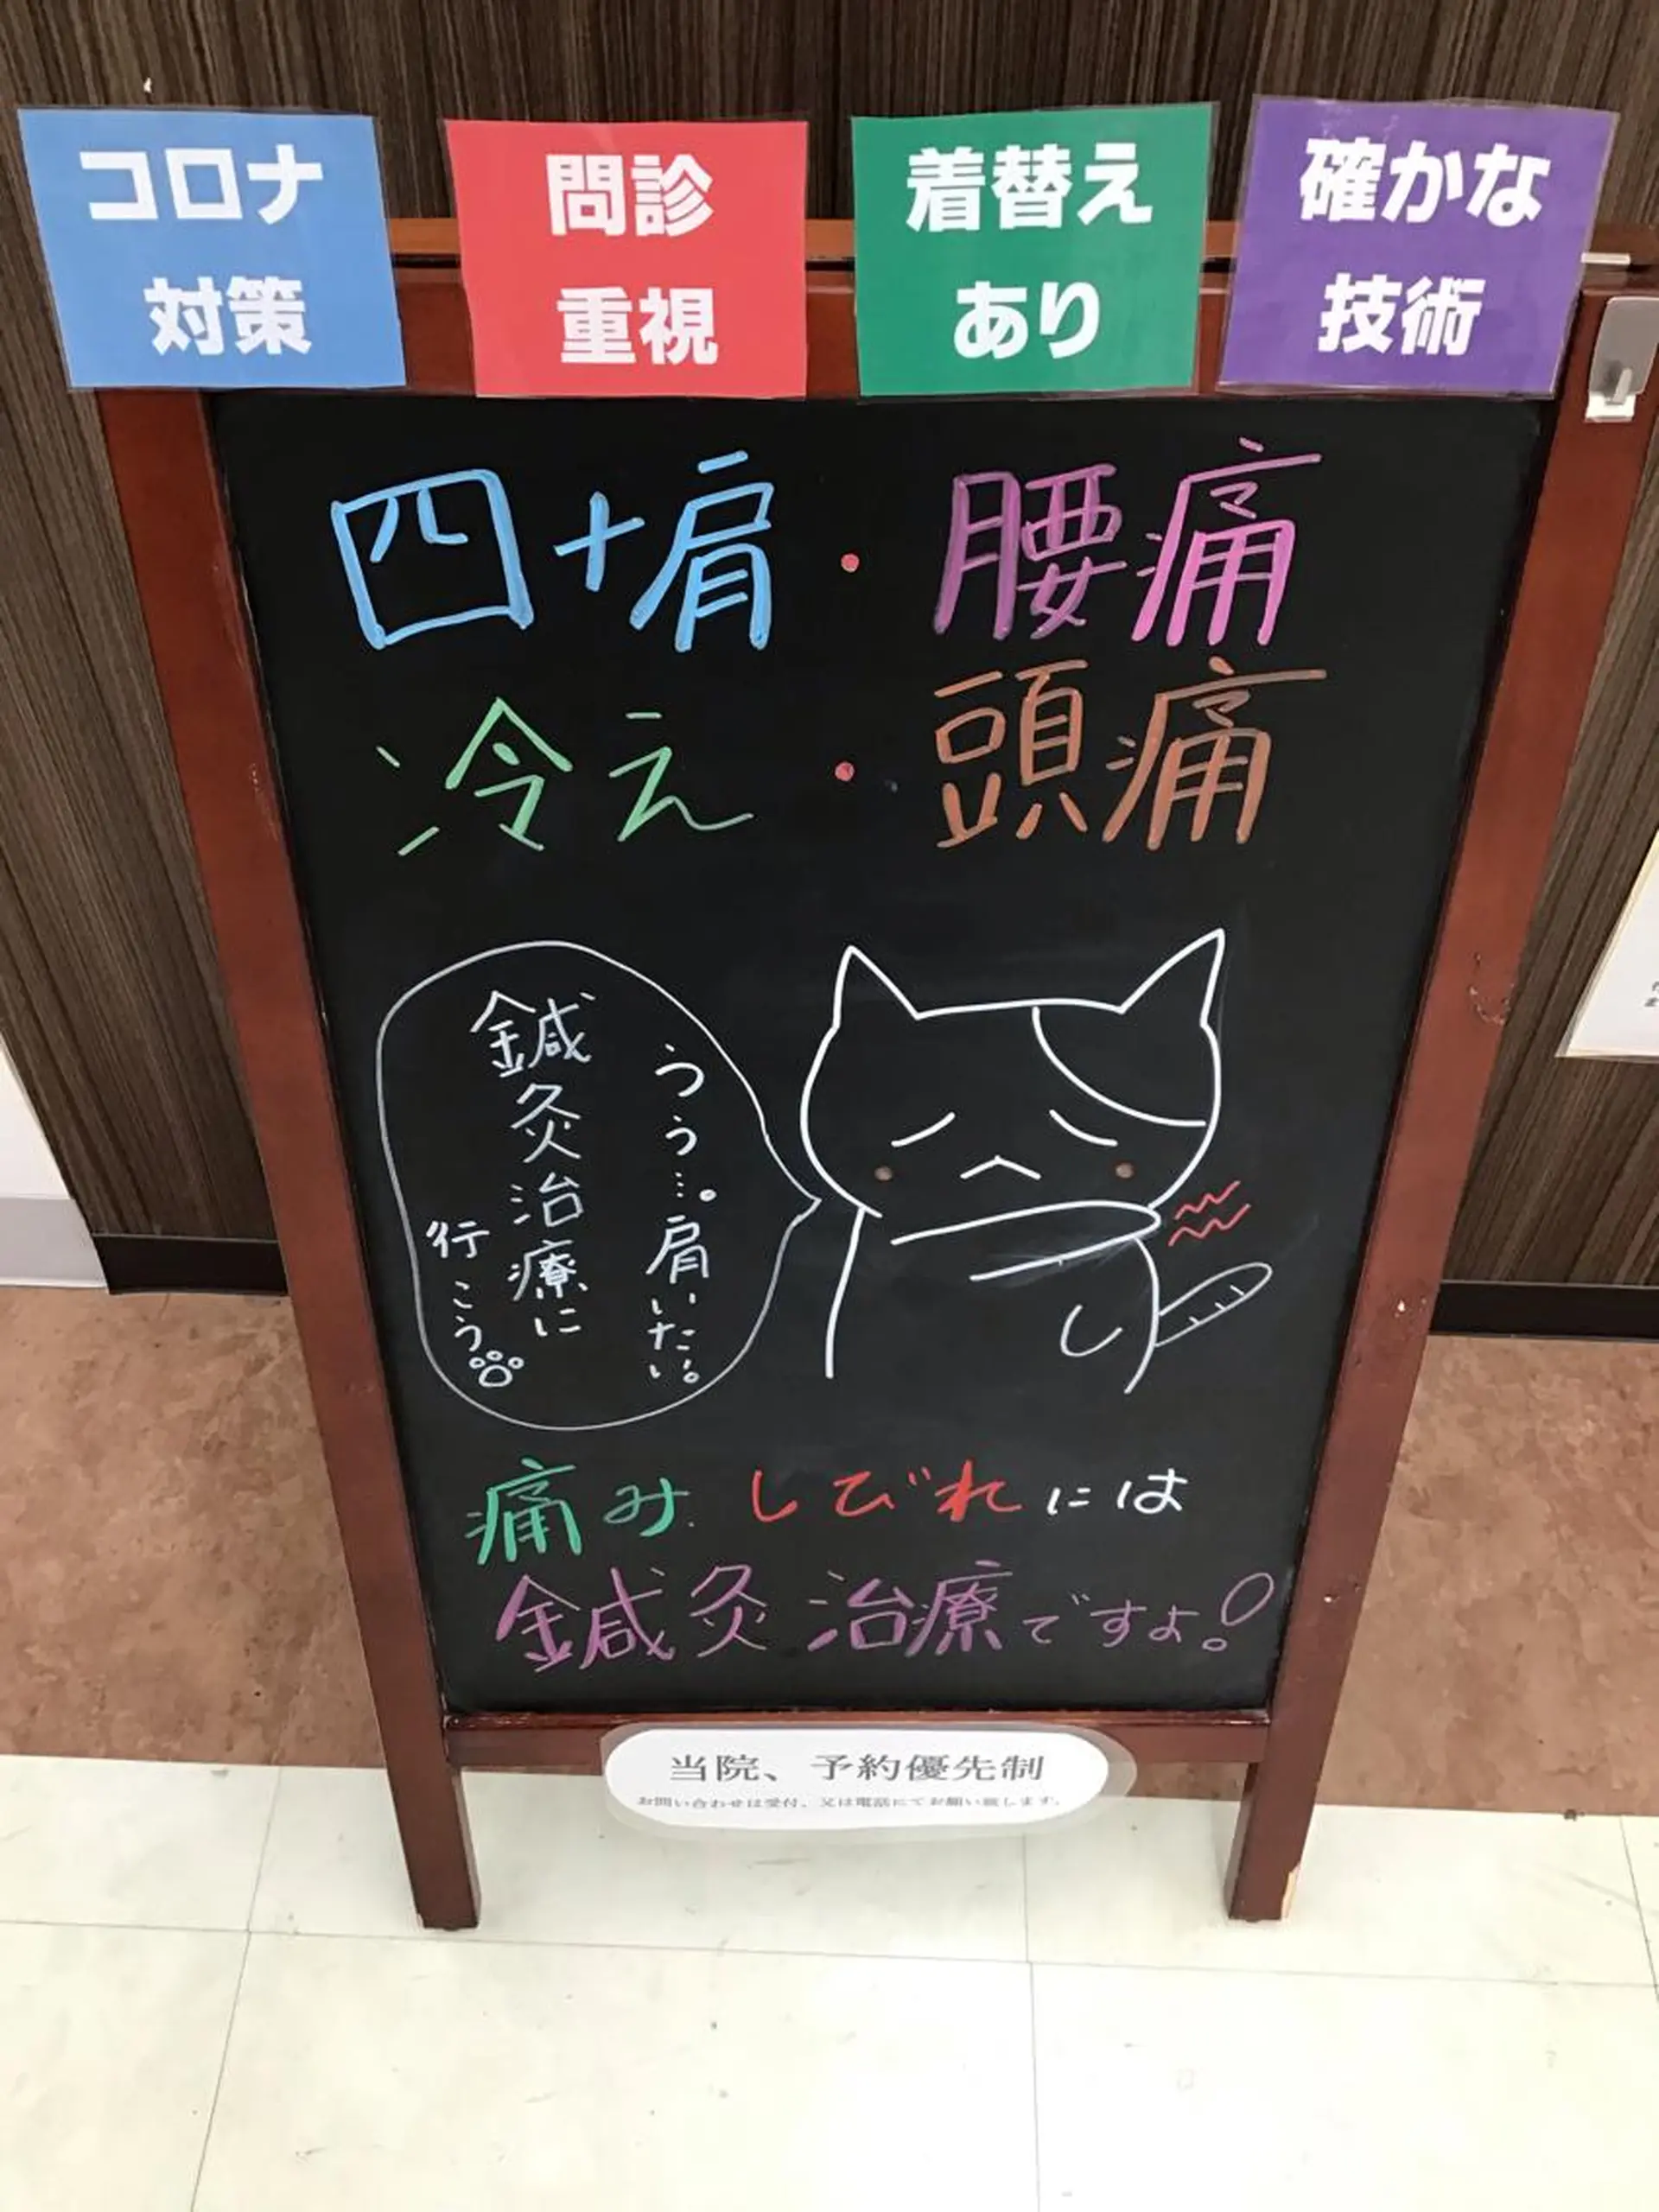 コロナ
対策
問診
重視
着替え
あり
確かな
技術
四十肩・腰痛
冷え・頭痛
うう…。肩いたい。
鍼灸治療に
行こう
痛みしびれには
鍼灸治療ですよ!
当院、予約優先制
お問い合わせは受付、又は電話にてお願い致します。